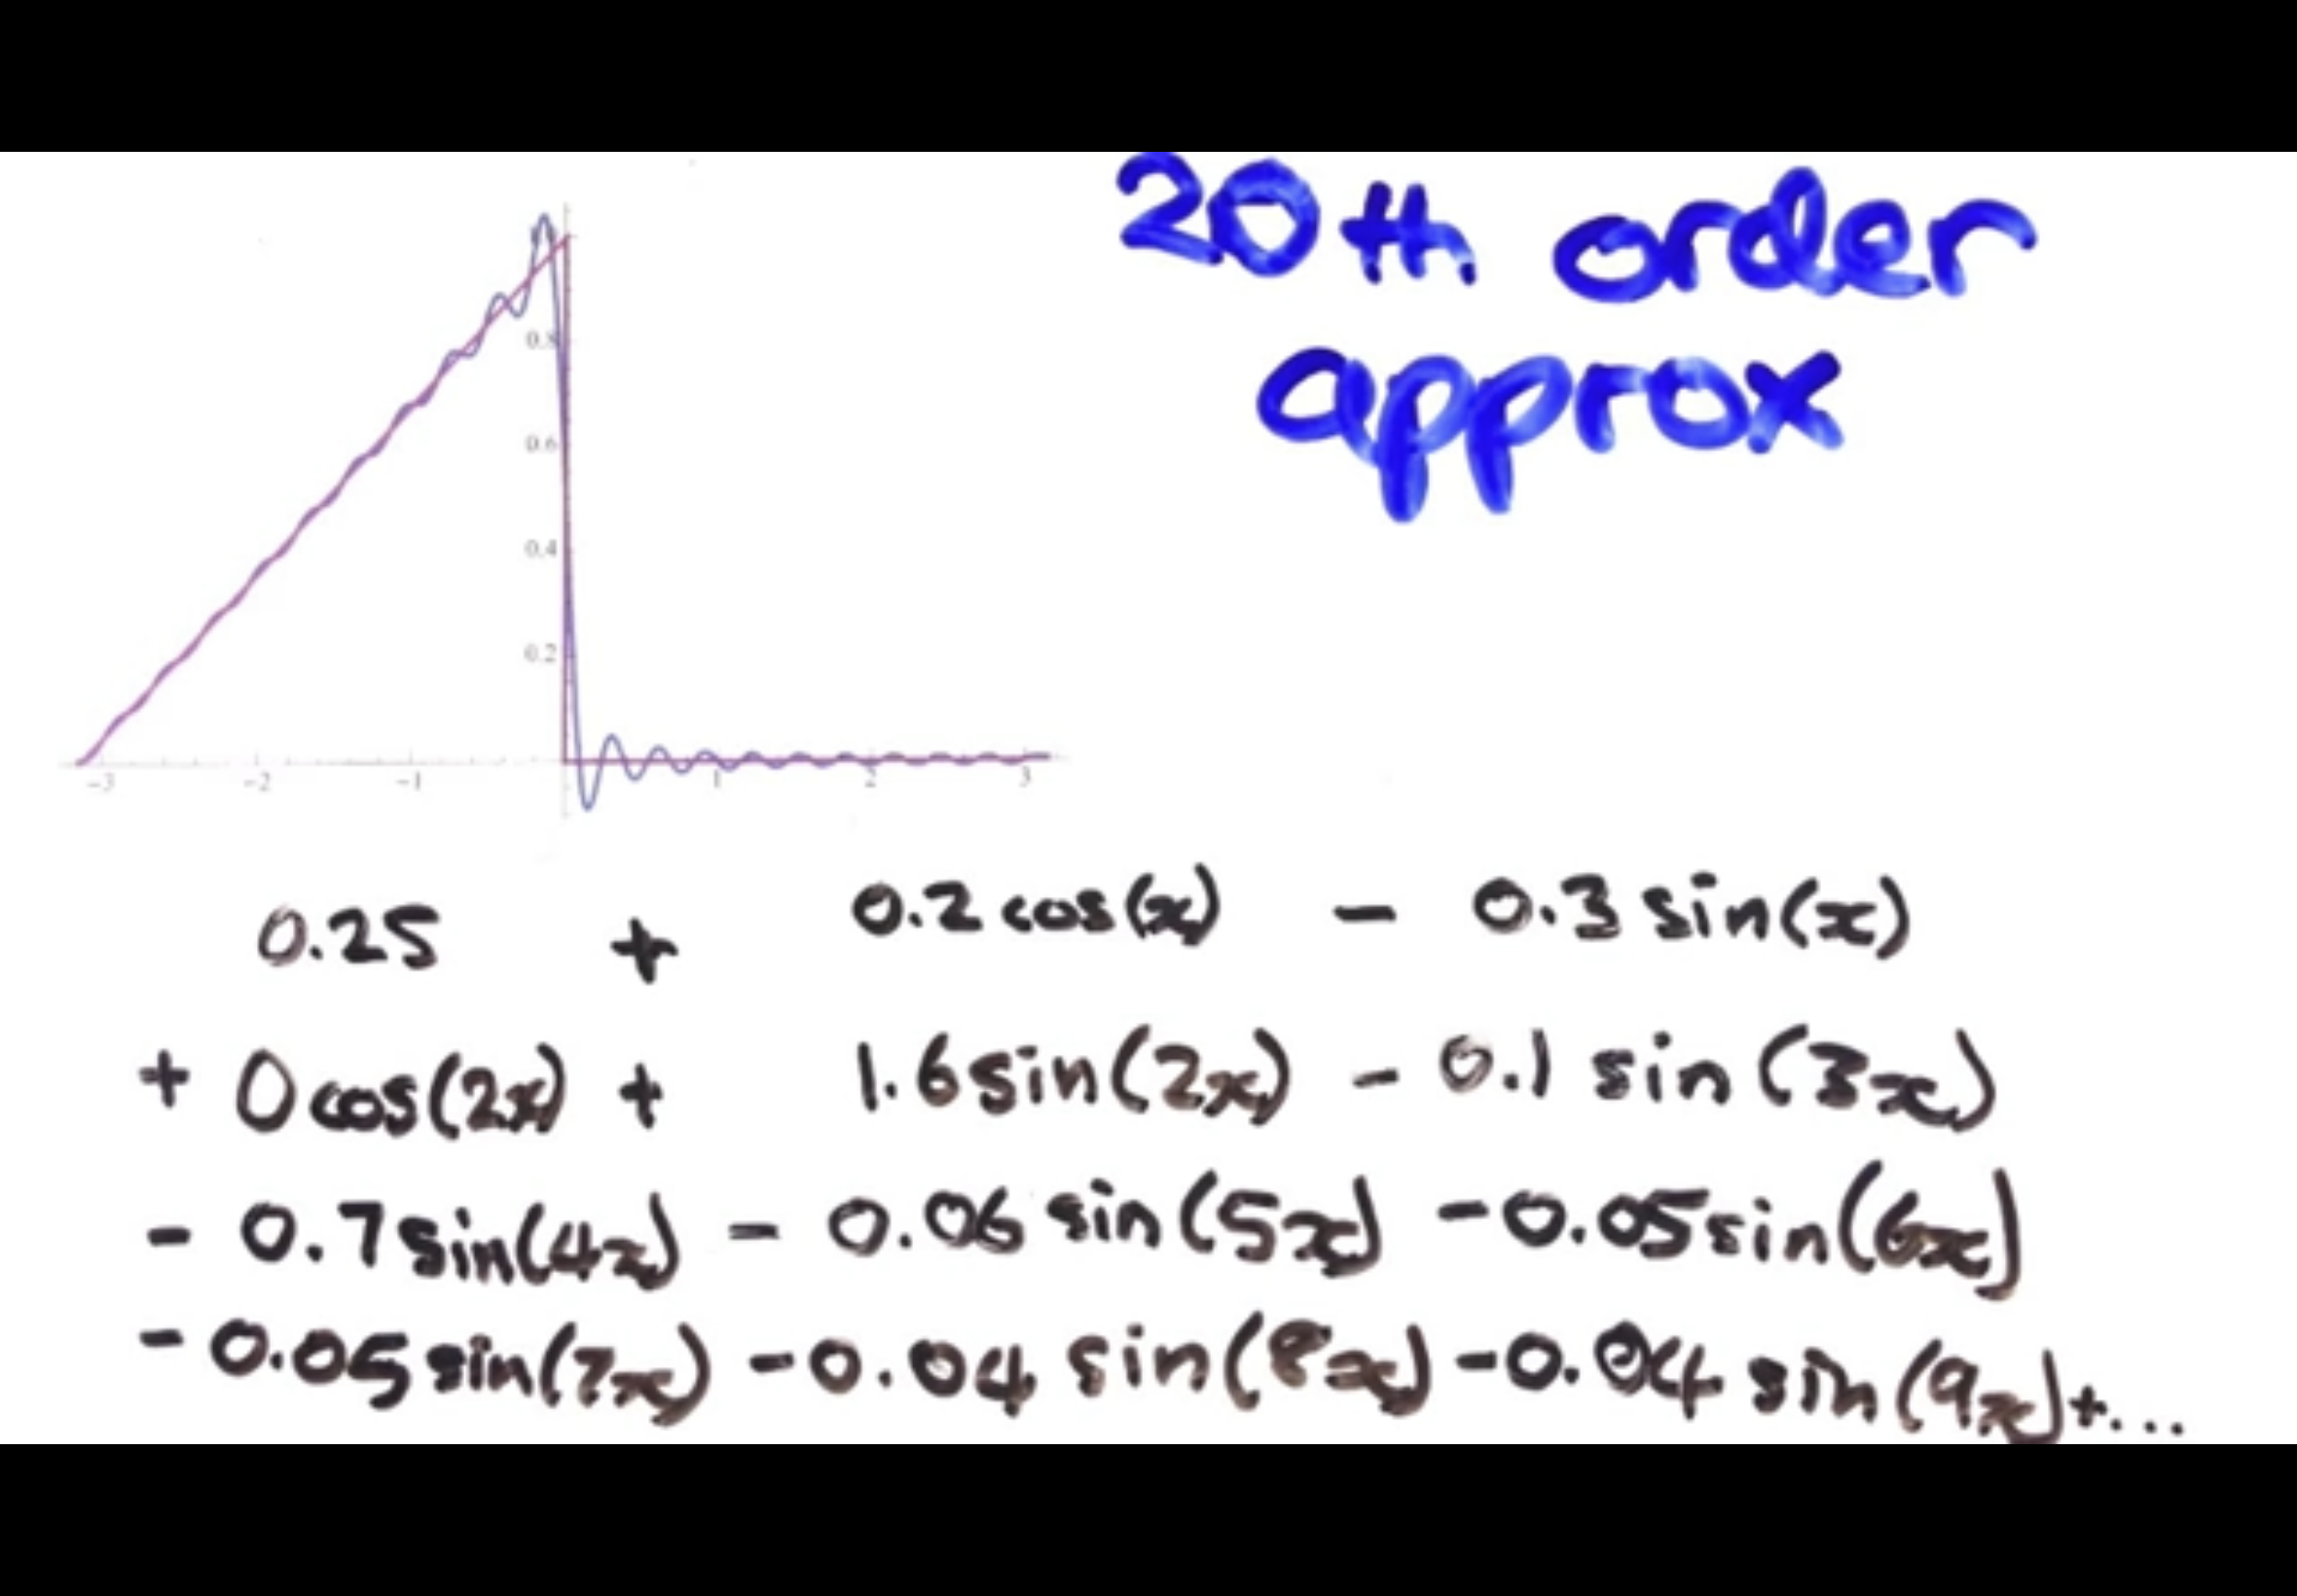 20th order
approx
0.8
0.6
0.4
0.2
-3 -2 -1 1 2 3
0.25 + 0.2 cos(x) - 0.3 sin(x)
+ 0 cos(2x) + 1.6 sin(2x) - 0.1 sin(3x)
- 0.7 sin(4x) - 0.06 sin(5x) - 0.05 sin(6x)
- 0.05 sin(7x) - 0.04 sin(8x) - 0.04 sin(9x) + ...